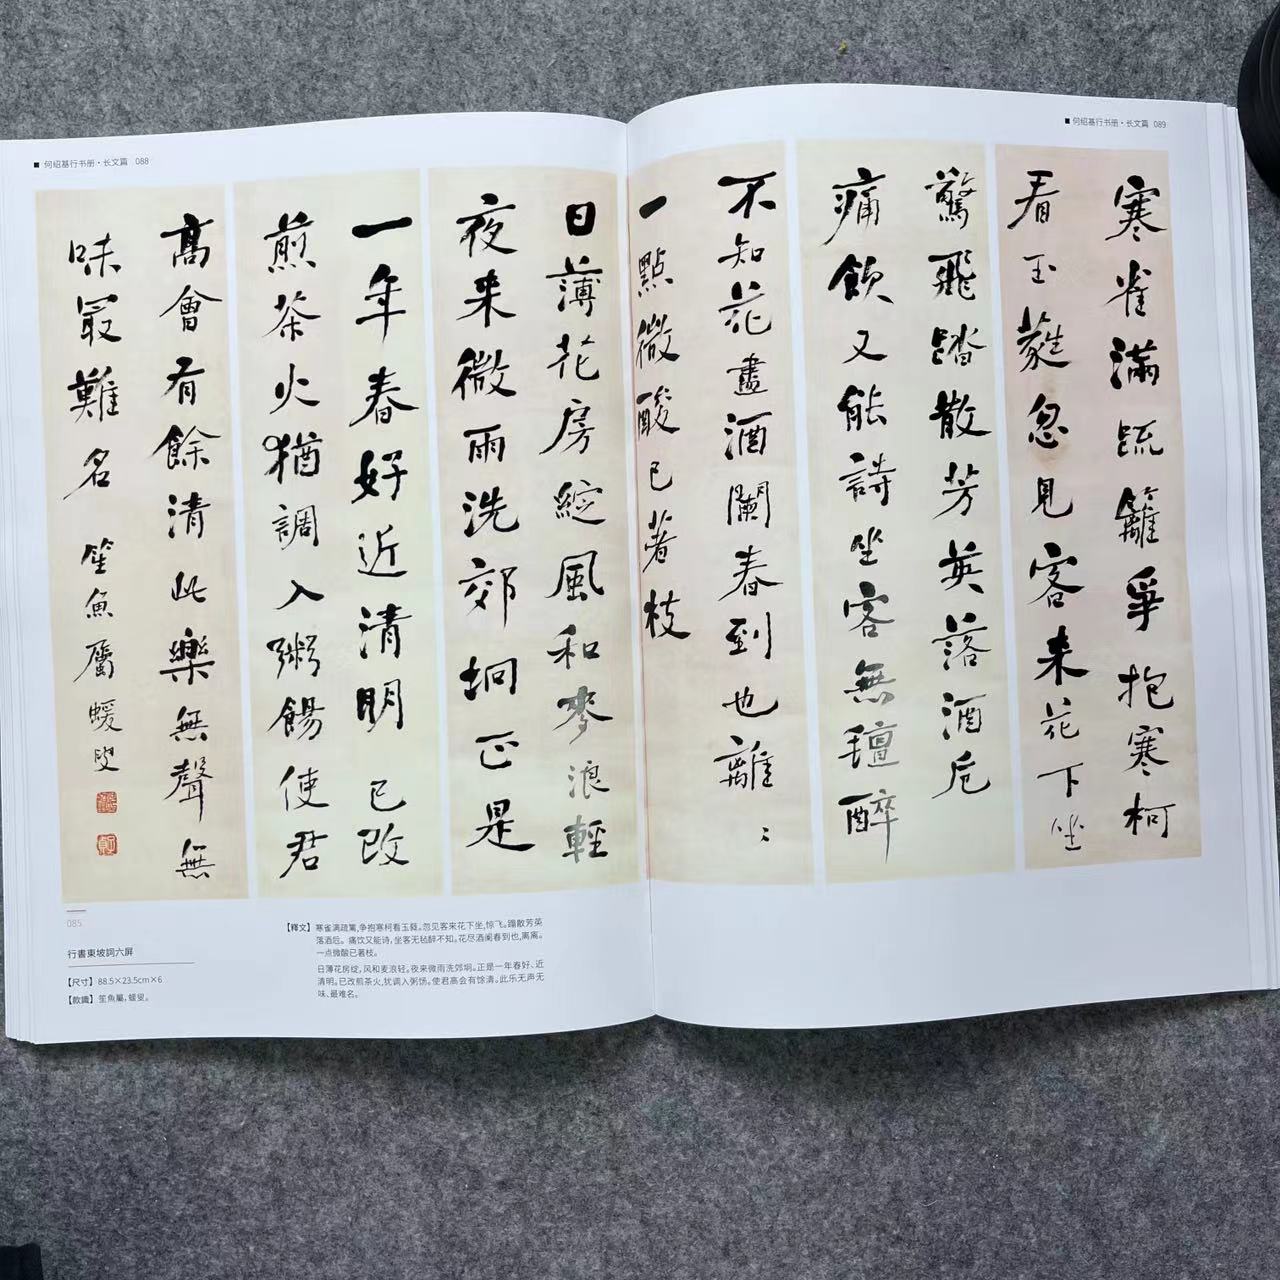 ■ 何绍基行书册·长文篇 088
■ 何绍基行书册·长文篇 089
寒雀滿疏籬爭抱寒柯
看玉蕤忽見客来花下坐
驚飛踏散芳英落酒卮
痛飲又能詩坐客無氊醉
不知花盡酒闌春到也離〻
一點微酸已著枝
日薄花房綻風和麥浪輕
夜来微雨洗郊坰正是
一年春好近清明已改
煎茶火猶調入粥餳使君
高會有餘清此樂無聲無
味最難名 笙魚屬蝯叟
085
行書東坡詞六屏
【尺寸】88.5×23.5cm×6
【款識】笙魚屬,蝯叟。
【釋文】寒雀满疏篱,争抱寒柯看玉蕤。忽见客来花下坐,惊飞。蹋散芳英
落酒后。痛饮又能诗,坐客无毡醉不知。花尽酒阑春到也,离离。
一点微酸已著枝。
日薄花房绽,风和麦浪轻。夜来微雨洗郊坰。正是一年春好、近
清明。已改煎茶火,犹调入粥饧。使君高会有馀清。此乐无声无
味、最难名。